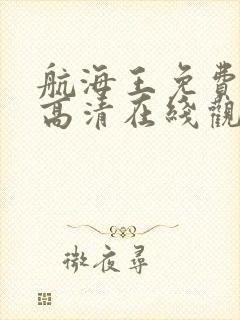 航海王免費
高清在綫觀
微夜尋